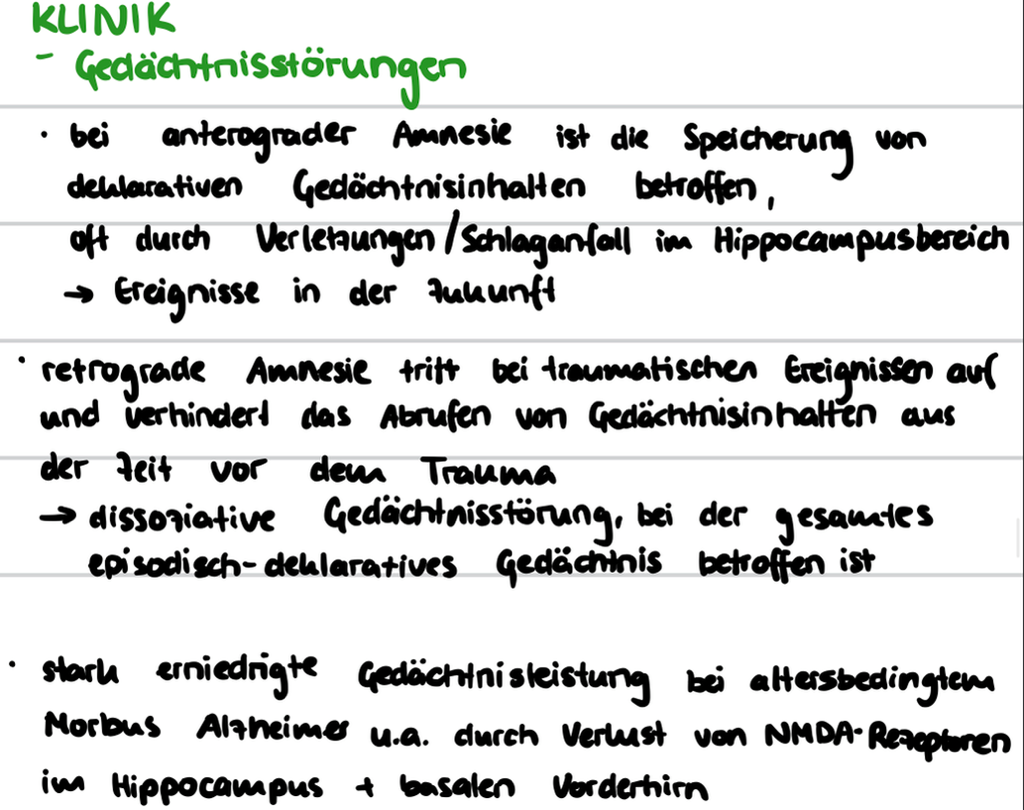 KLINIK
- Gedächtnisstörungen
· bei anterograder Amnesie ist die Speicherung von
deklarativen Gedächtnisinhalten betroffen,
oft durch Verletzungen/Schlaganfall im Hippocampusbereich
→ Ereignisse in der Zukunft
· retrograde Amnesie tritt bei traumatischen Ereignissen auf
und verhindert das Abrufen von Gedächtnisinhalten aus
der Zeit vor dem Trauma
→ dissoziative Gedächtnisstörung, bei der gesamtes
episodisch-deklaratives Gedächtnis betroffen ist
· stark erniedrigte Gedächtnisleistung bei altersbedingtem
Morbus Alzheimer u.a. durch Verlust von NMDA-Rezeptoren
im Hippocampus + basalen Vorderhirn